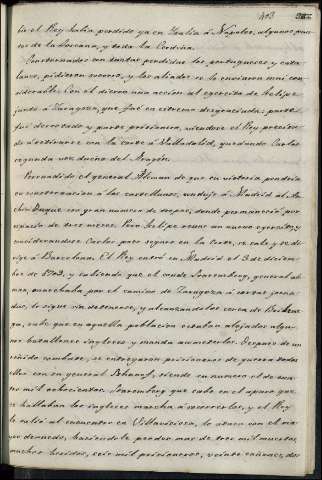 403
bía el Rey había perdido ya en Italia á Nápoles, algunos puer
tos de la Toscana, y toda la Cerdeña.
Consternados con tantas perdidas los portugueses y cata
lanes, pidieron socorro, y los aliados se lo enviaron muy con
siderable. Con él dieron una acción al ejercito de Felipe
junto á Zaragoza, que fué en estremo desgraciada: parte
fué derrotado y parte prisionero, viendose el Rey precisa
do á retirarse con la corte á Valladolid, quedando Carlos
segunda vez dueño del Aragón.
Persuadido el general Aleman de que su victoria pondria
en consternacion á los castellanos, condujo á Madrid al Ar
chi Duque con gran numero de tropas, donde permaneció por
espacio de tres meses. Pero Felipe reune un nuevo egercito, y
considerandose Carlos poco seguro en la Corte, se sale y se di
rije á Barcelona. El Rey entró en Madrid el 3 de diciem
bre de 1703, y sabiendo que el conde Staremberg, general ale
man, marchaba por el camino de Zaragoza á cortas jorna
das, lo sigue sin detenerse, y alcanzandolos cerca de Brihue
ga, sabe que en aquella poblacion estaban alojados algu
nos batallones ingleses y manda acometerlos. Despues de un
reñido combate, se entregaron prisioneros de guerra todos
ellos con su general Stanop, siendo en numero el de cua
tro mil ochocientos. Staremberg que sabe en el apuro que
se hallaban los ingleses marcha á socorrerlos, y el Rey
le salió al encuentro en Villaviciosa, lo ataca con el ma
yor denuedo, haciendole perder mas de tres mil muertos,
muchos heridos, seis mil prisioneros, veinte cañones, dos